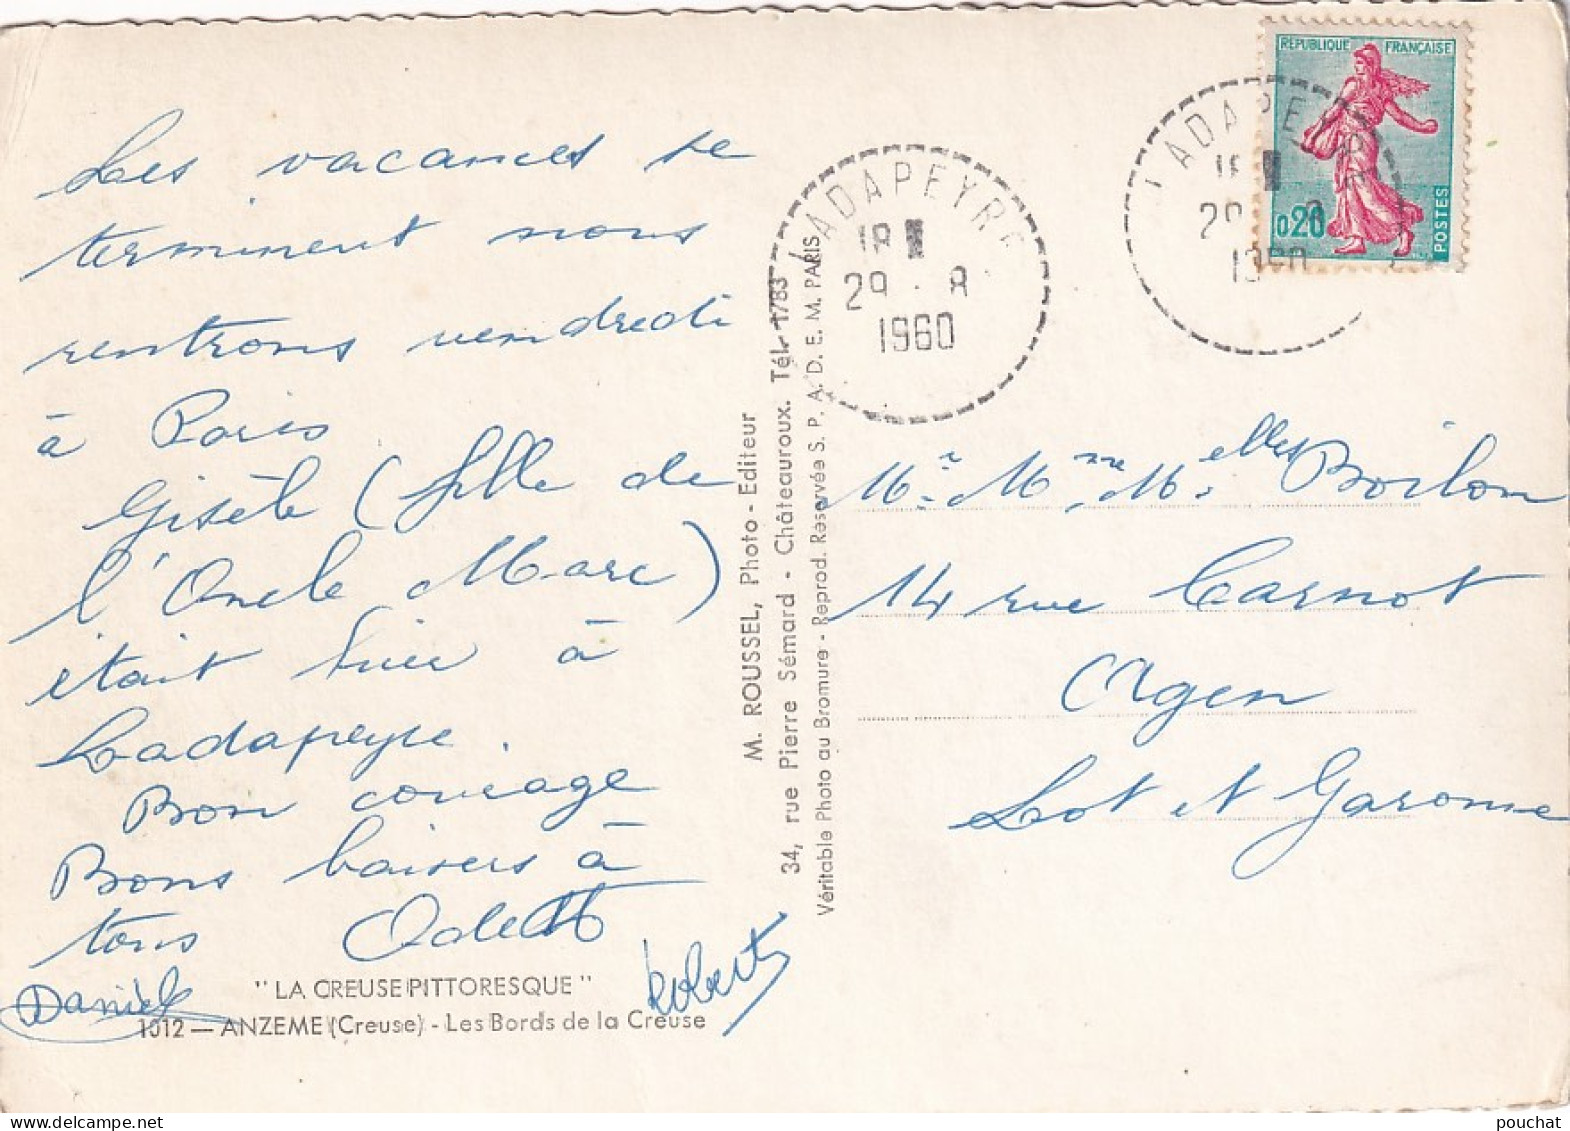 Les vacances se
terminent nous
rentrons vendredi
à Paris
Gisèle (fille de
l'Oncle Marc)
était hier à
Ladapeyre.
Bon courage
Bons baisers à
tous Odette
Daniele
Robert
"LA CREUSE PITTORESQUE"
1012 — ANZEME (Creuse) - Les Bords de la Creuse
M. ROUSSEL, Photo - Editeur
34, rue Pierre Sémard - Châteauroux. Tél. 1783
Véritable Photo au Bromure - Reprod. Réservée S. P. A. D. E. M. PARIS
LADAPEYRE
18
29 - 8
1960
LADAPEYRE
18
29 8
1960
REPUBLIQUE FRANÇAISE
0,20
POSTES
Mr. Mme Melles Boilon
14 rue Carnot
Agen
Lot et Garonne
pouchat